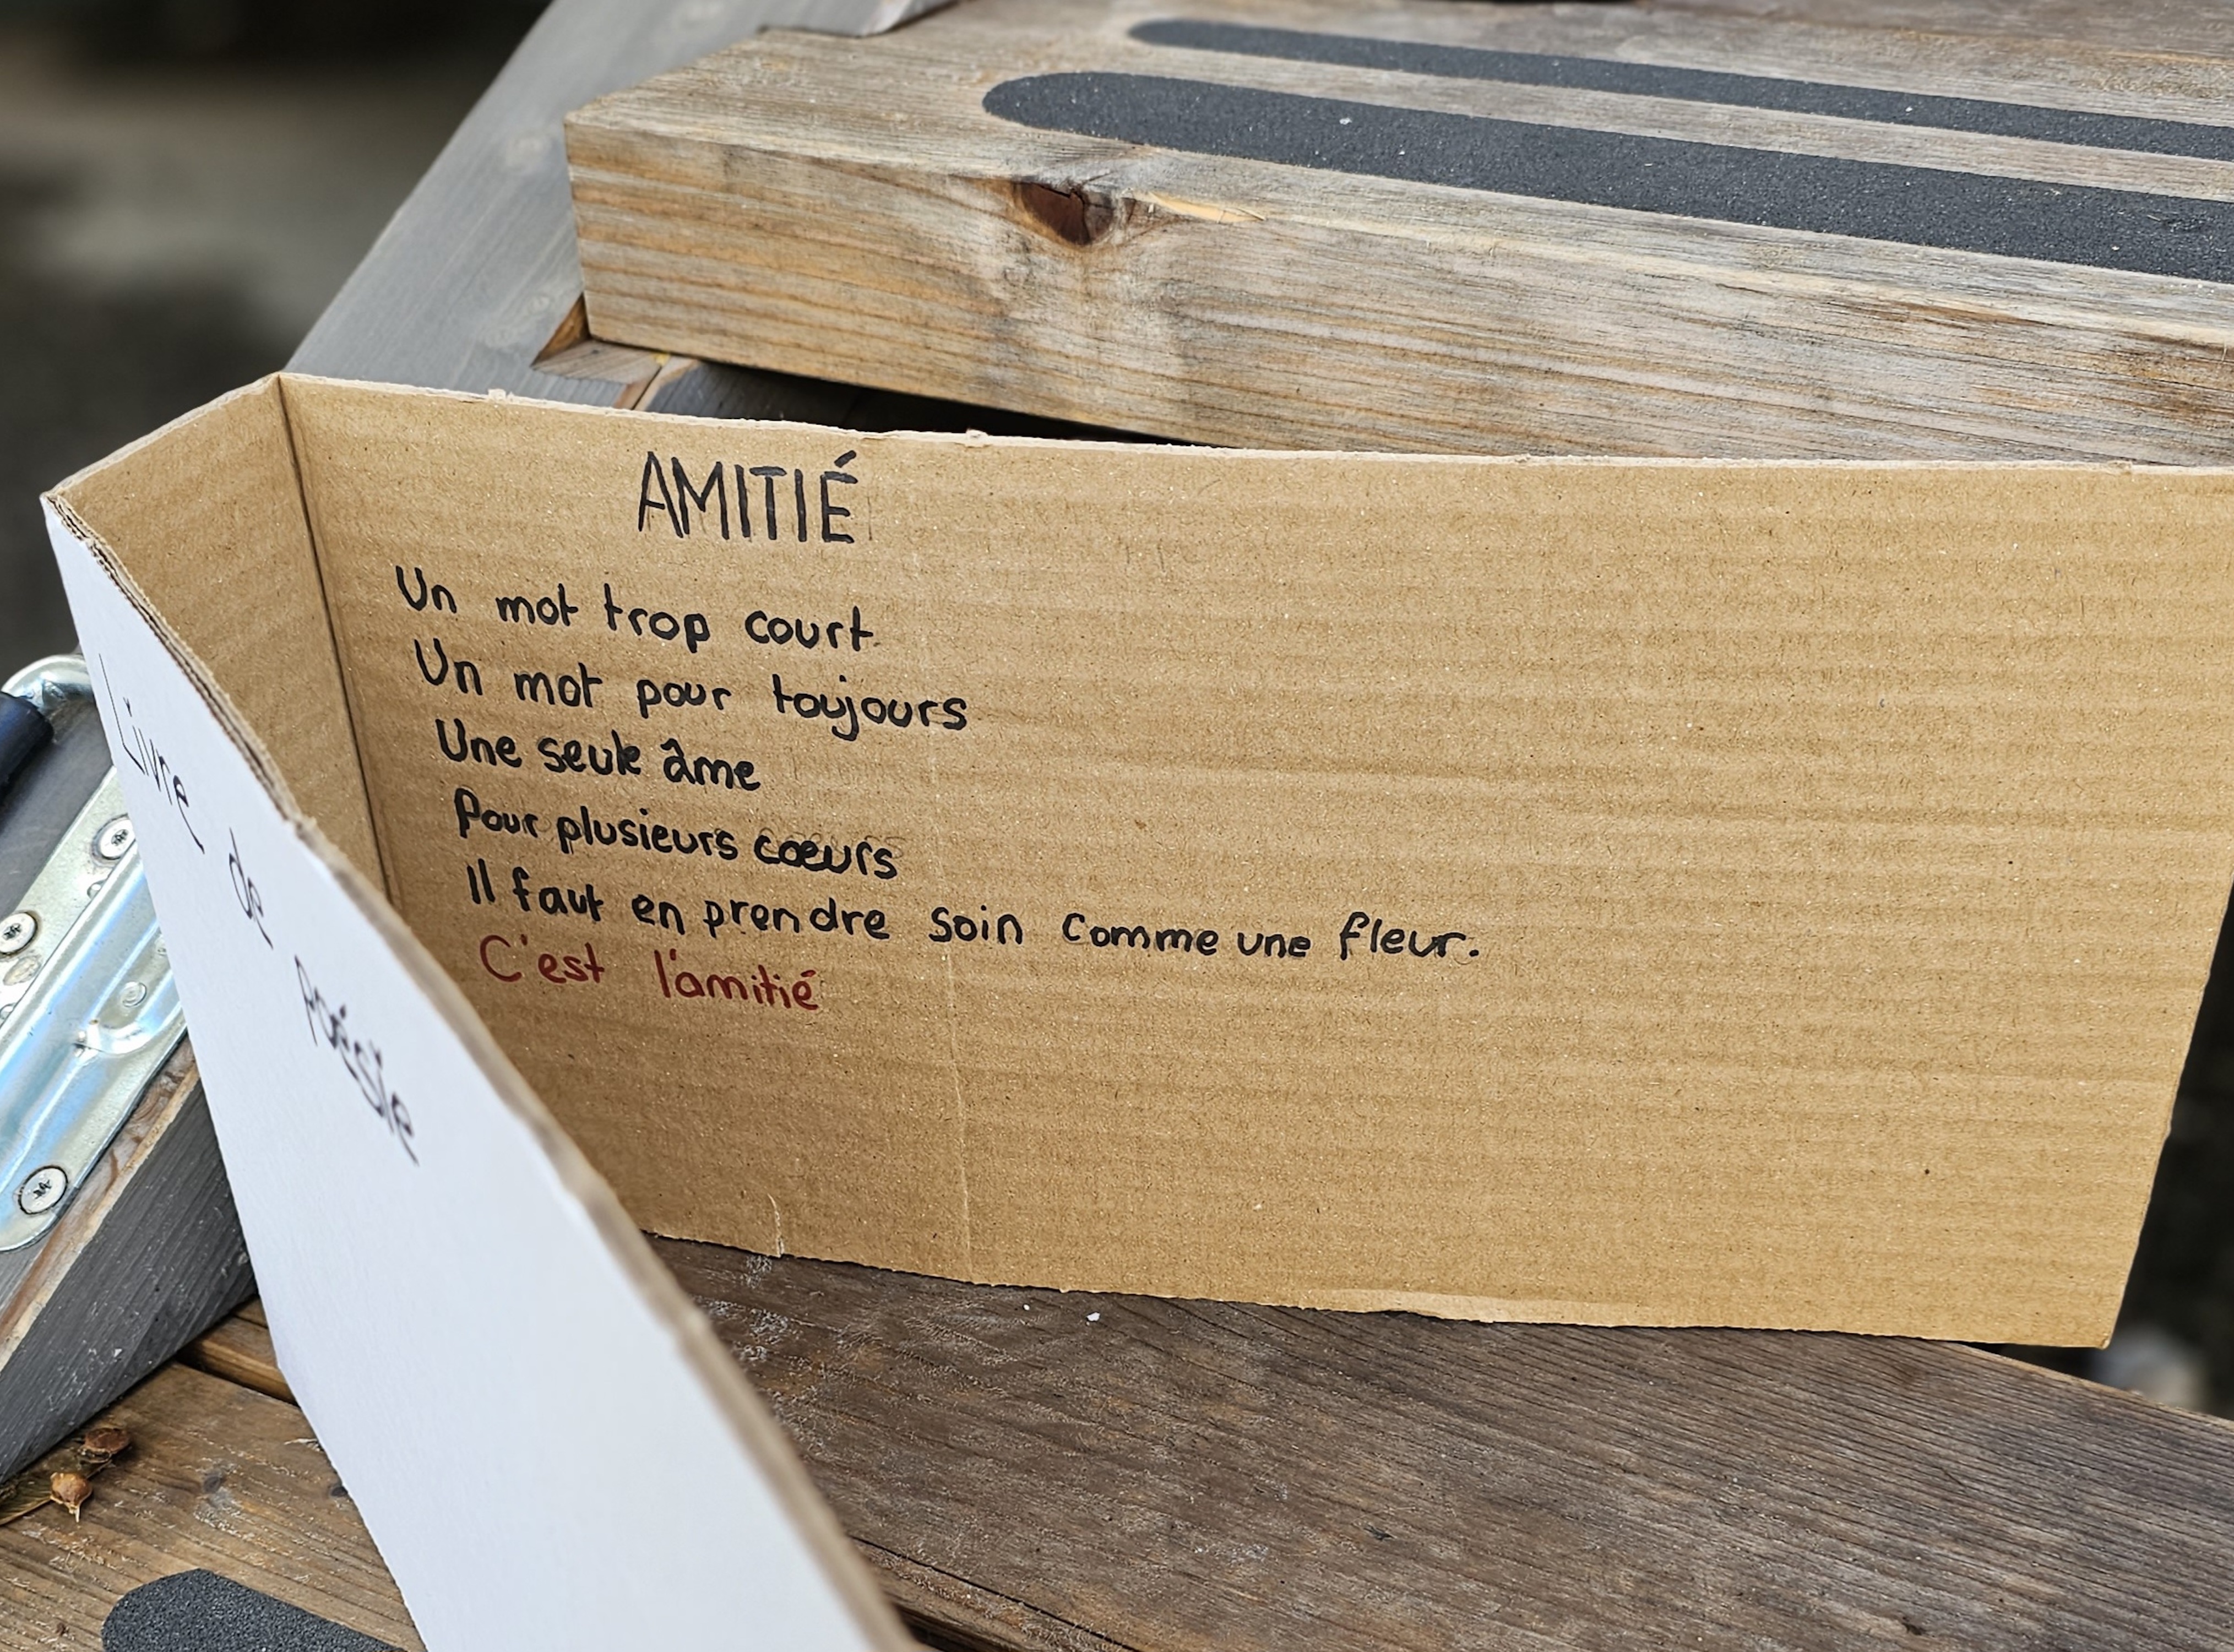 Livre de Poésie
AMITIÉ
Un mot trop court
Un mot pour toujours
Une seule âme
Pour plusieurs cœurs
Il faut en prendre soin comme une fleur.
C'est l'amitié